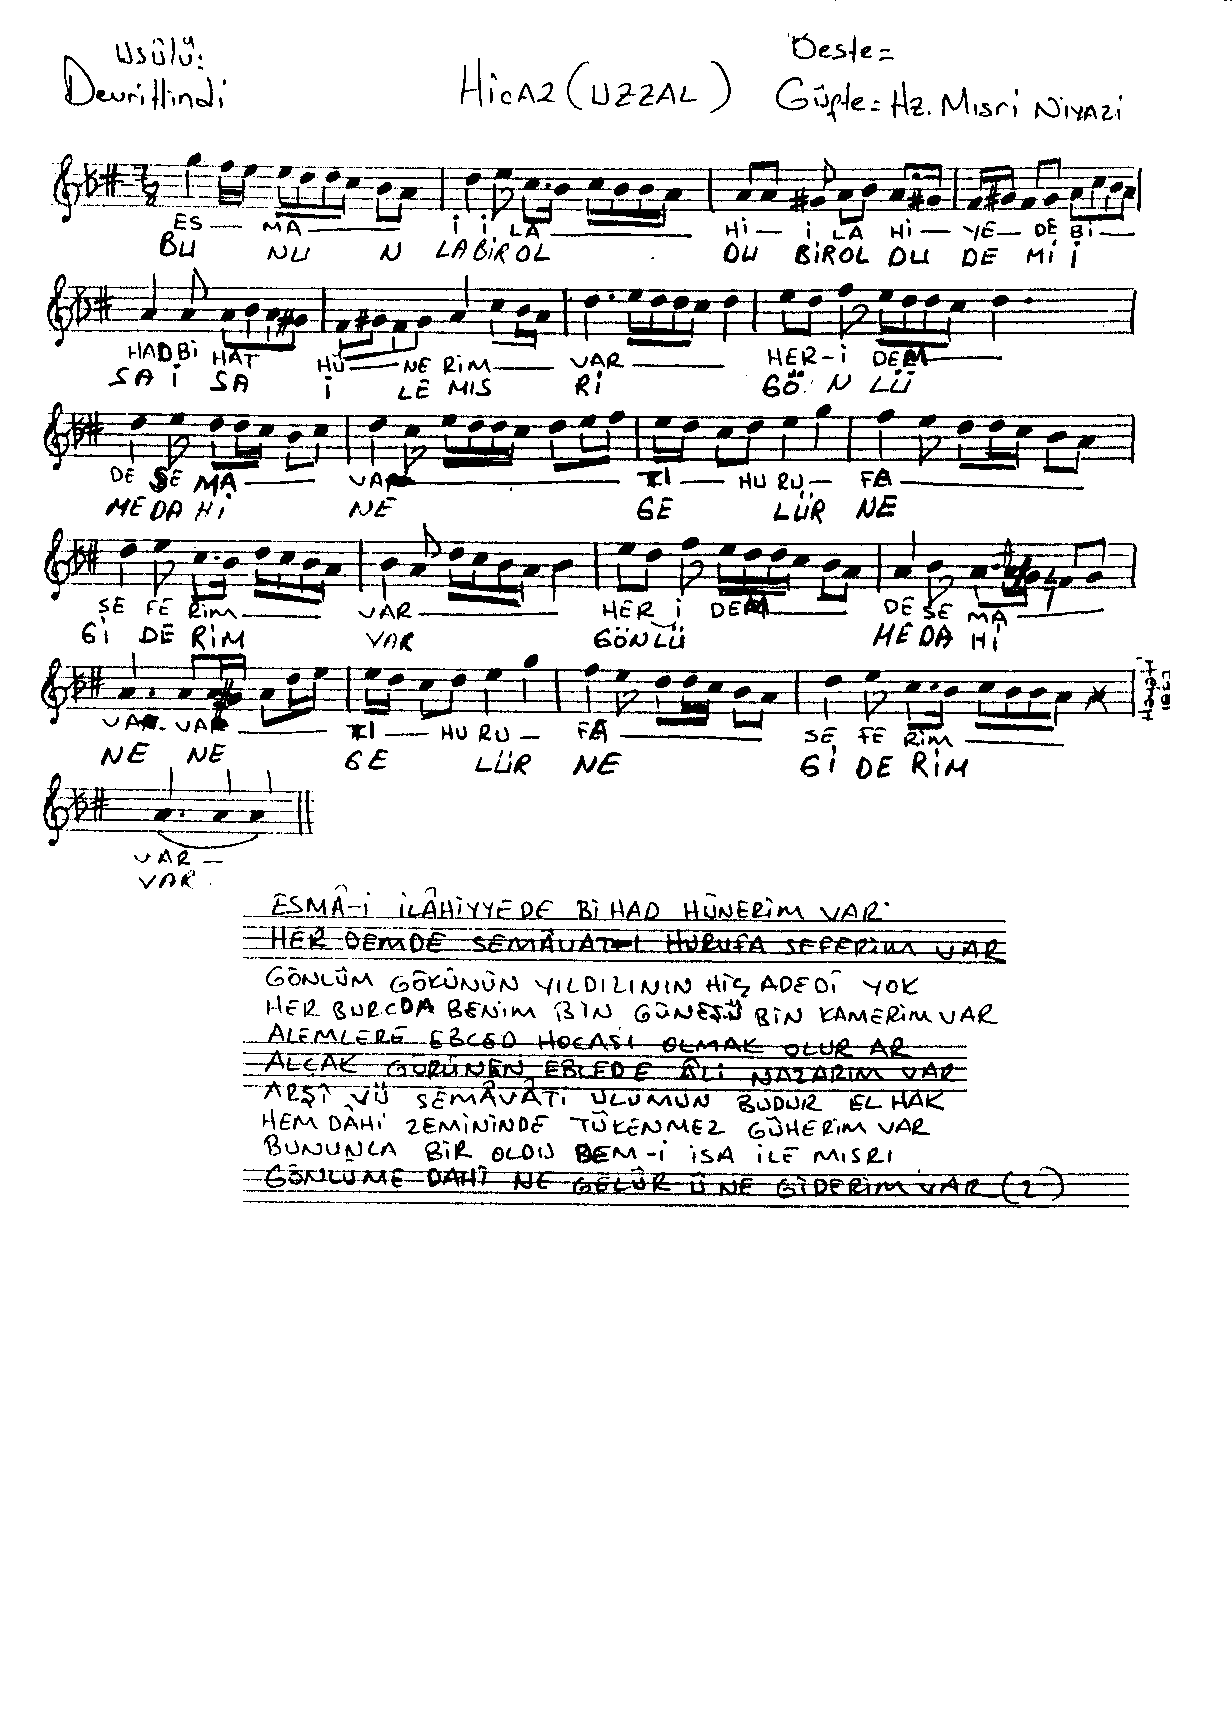 Usûlü:
DevriHindi
HicAz (UZZAL)
Beste=
Güfte= Hz. Mısri NİYAZİ
7/8
ES— MA— İ İ LA— Hİ— İ LA Hİ— YE— DE Bİ—
BU NU N LABİROL DU BİROL DU DE Mİ İ
HADBİ HAT HÜ—NE RİM— VAR— HER-İ DEM—
SA İ SA İ LE MIS RI GÖ N LÜ
DE SE MA— VA— Tİ— HU RU— FA—
ME DA Hİ NE GE LÜR NE
SE FE RİM— VAR— HER İ DEM— DE SE MA—
Gİ DE RİM VAR GÖNLÜ ME DA Hİ
VAR. VAR— Tİ— HU RU— FA— SE FE RİM—
NE NE GE LÜR NE Gİ DE RİM
VAR—
VAR.
ESMÂ-İ İLÂHİYYEDE BİHAD HÜNERİM VAR
HER DEMDE SEMÂVAT-I HURUFA SEFERİM VAR
GÖNLÜM GÖKÜNÜN YILDIZININ HİÇ ADEDİ YOK
HER BURCDA BENİM BİN GÜNEŞÜ BİN KAMERİM VAR
ALEMLERE EBCED HOCASI OLMAK OLUR AR
ALÇAK GÖRÜNEN EBCEDE ÂLİ NAZARIM VAR
ARŞİ VÜ SEMÂVÂTİ ULUMUN BUDUR EL HAK
HEM DÂHİ ZEMİNİNDE TÜKENMEZ GÜHERİM VAR
BUNUNLA BİR OLDU DEM-İ İSA İLE MISRI
GÖNLÜME DAHİ NE GELÜR Ü NE GİDERİM VAR (2)